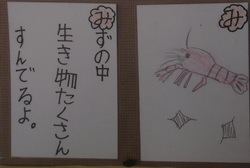 みずの中
生き物たくさん
すんでるよ。
み